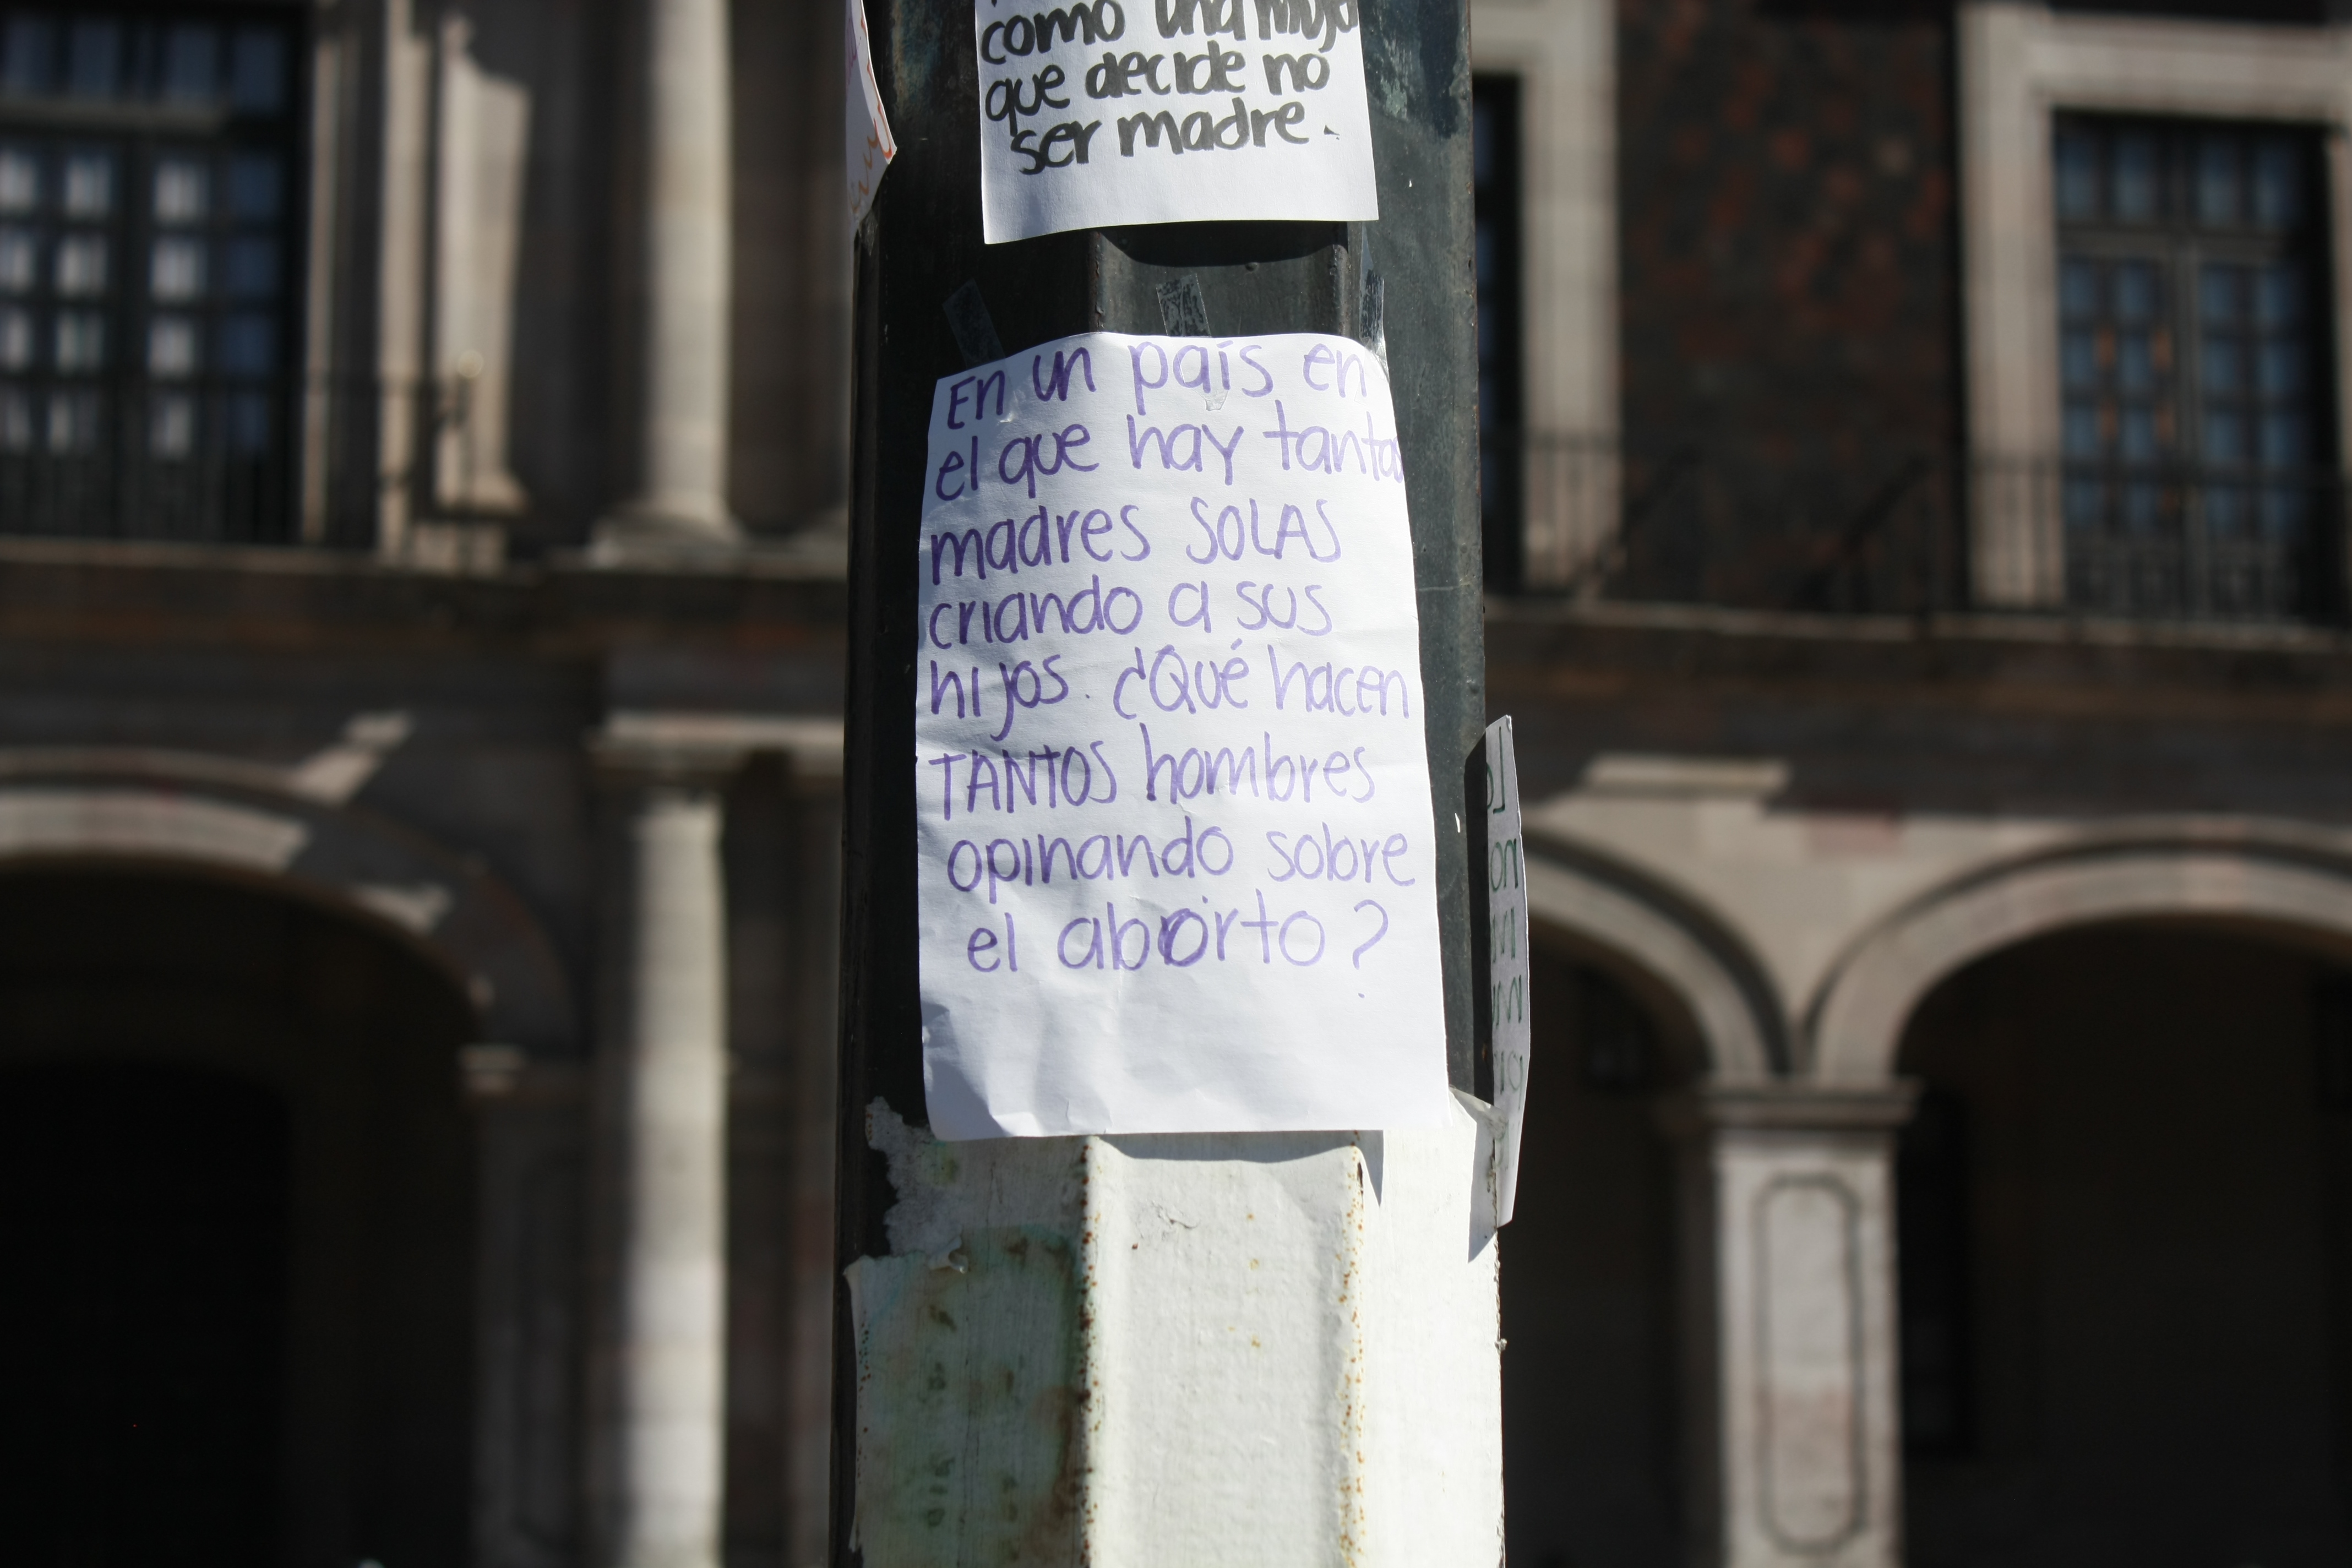 como una mujer
que decide no
ser madre.
En un país en
el que hay tantas
madres SOLAS
criando a sus
hijos. ¿Qué hacen
TANTOS hombres
opinando sobre
el aborto?